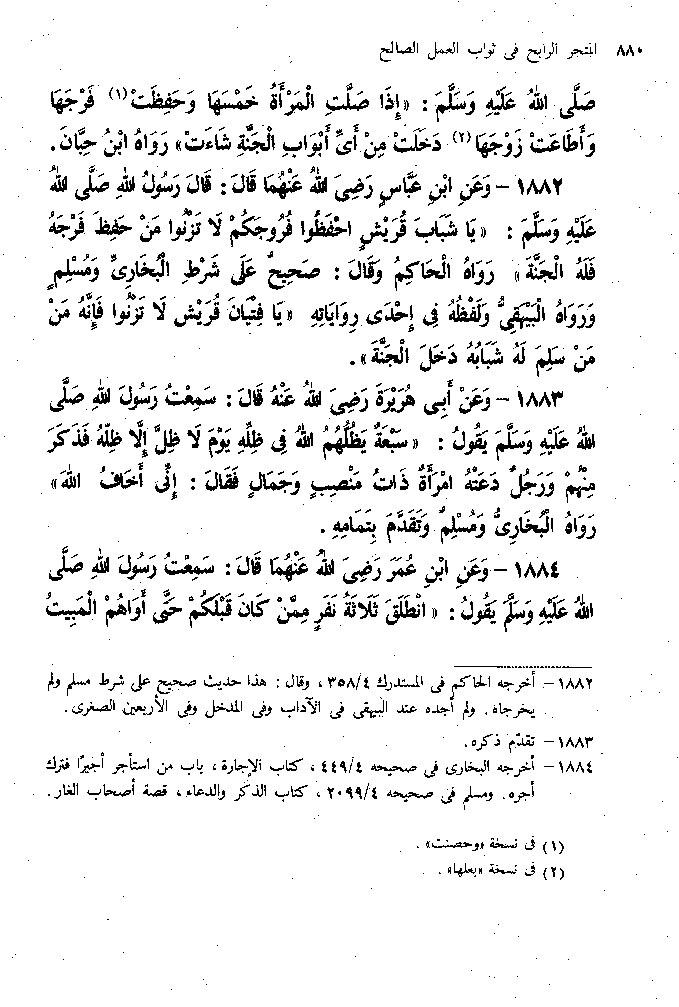 ٨٨٠ المتجر الرابح في ثواب العمل الصالح
صَلَّى اللهُ عَلَيْهِ وَسَلَّمَ : «إِذَا صَلَّتِ الْمَرْأَةُ خَمْسَهَا وَحَفِظَتْ(١) فَرْجَهَا
وَأَطَاعَتْ زَوْجَهَا(٢) دَخَلَتْ مِنْ أَىِّ أَبْوَابِ الْجَنَّةِ شَاءَتْ» رَوَاهُ ابْنُ حِبَّانَ.
١٨٨٢ – وَعَنِ ابْنِ عَبَّاسٍ رَضِىَ اللهُ عَنْهُمَا قَالَ : قَالَ رَسُولُ اللهِ صَلَّى اللهُ
عَلَيْهِ وَسَلَّمَ : «يَا شَبَابَ قُرَيْشٍ احْفَظُوا فُرُوجَكُمْ لَا تَزْنُوا مَنْ حَفِظَ فَرْجَهُ
فَلَهُ الْجَنَّةُ» رَوَاهُ الْحَاكِمُ وَقَالَ : صَحِيحٌ عَلَى شَرْطِ الْبُخَارِىِّ وَمُسْلِمٍ
وَرَوَاهُ الْبَيْهَقِىُّ وَلَفْظُهُ فِى إِحْدَى رِوَايَاتِهِ «يَا فِتْيَانَ قُرَيْشٍ لَا تَزْنُوا فَإِنَّهُ مَنْ
مَنْ سَلِمَ لَهُ شَبَابُهُ دَخَلَ الْجَنَّةَ».
١٨٨٣ – وَعَنْ أَبِى هُرَيْرَةَ رَضِىَ اللهُ عَنْهُ قَالَ : سَمِعْتُ رَسُولَ اللهِ صَلَّى
اللهُ عَلَيْهِ وَسَلَّمَ يَقُولُ : «سَبْعَةٌ يَظُلُّهُمُ اللهُ فِى ظِلِّهِ يَوْمَ لَا ظِلَّ إِلَّا ظِلُّهُ فَذَكَرَ
مِنْهُمْ وَرَجُلٌ دَعَتْهُ امْرَأَةٌ ذَاتُ مَنْصِبٍ وَجَمَالٍ فَقَالَ : إِنِّى أَخَافُ اللهَ»
رَوَاهُ الْبُخَارِىُّ وَمُسْلِمٌ وَتَقَدَّمَ بِتَمَامِهِ .
١٨٨٤ – وَعَنِ ابْنِ عُمَرَ رَضِىَ اللهُ عَنْهُمَا قَالَ : سَمِعْتُ رَسُولَ اللهِ صَلَّى
اللهُ عَلَيْهِ وَسَلَّمَ يَقُولُ : «انْطَلَقَ ثَلَاثَةُ نَفَرٍ مِمَّنْ كَانَ قَبْلَكُمْ حَتَّى أَوَاهُمُ الْمَبِيتُ
١٨٨٢ – أخرجه الحاكم فى المستدرك ٣٥٨/٤ ، وقال : هذا حديث صحيح على شرط مسلم ولم
يخرجاه. ولم أجده عند البيهقى فى الآداب وفى المدخل وفى الأربعين الصغرى.
١٨٨٣ – تقدّم ذكره.
١٨٨٤ – أخرجه البخارى فى صحيحه ٤٤٩/٤ ، كتاب الإجارة، باب من استأجر أجيرًا فترك
أجره. ومسلم فى صحيحه ٢٠٩٩/٤ ، كتاب الذكر والدعاء، قصة أصحاب الغار.
(١) فى نسخة «وحصنت» .
(٢) فى نسخة «بعلها» .